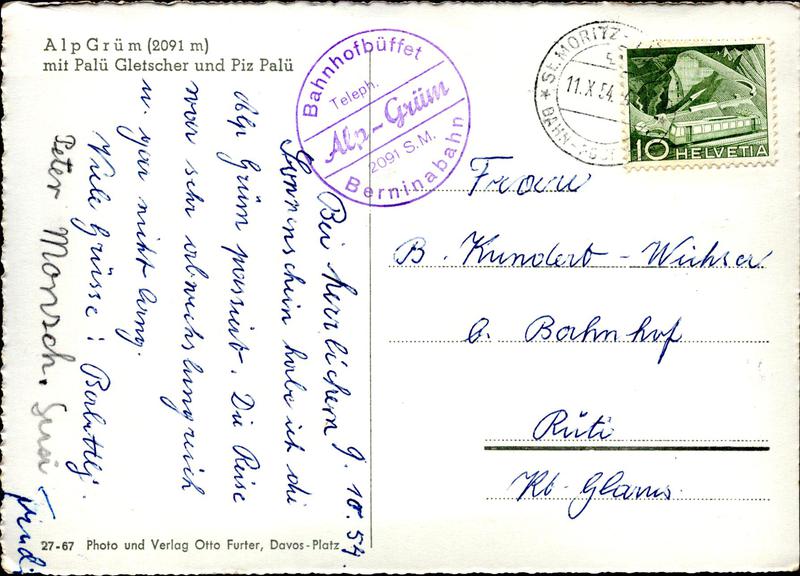 Alp Grüm (2091 m)
mit Palü Gletscher und Piz Palü
Bahnhofbüffet
Teleph.
Alp-Grüm
2091 S.M.
Berninabahn
ST. MORITZ
11.X.54
BAHN
10 HELVETIA
9. 10. 54.
Bei herrlichem
Sonnenschein habe ich die
Alp Grüm passiert. Die Reise
war sehr abwechslungsreich
u. gar nicht lang.
Viele Grüsse:
Peter Monsch. Susi
Trudi
Frau
B. Kundert-Wichser
b. Bahnhof
Rüti
Kt. Glarus.
27-67 Photo und Verlag Otto Furter, Davos-Platz